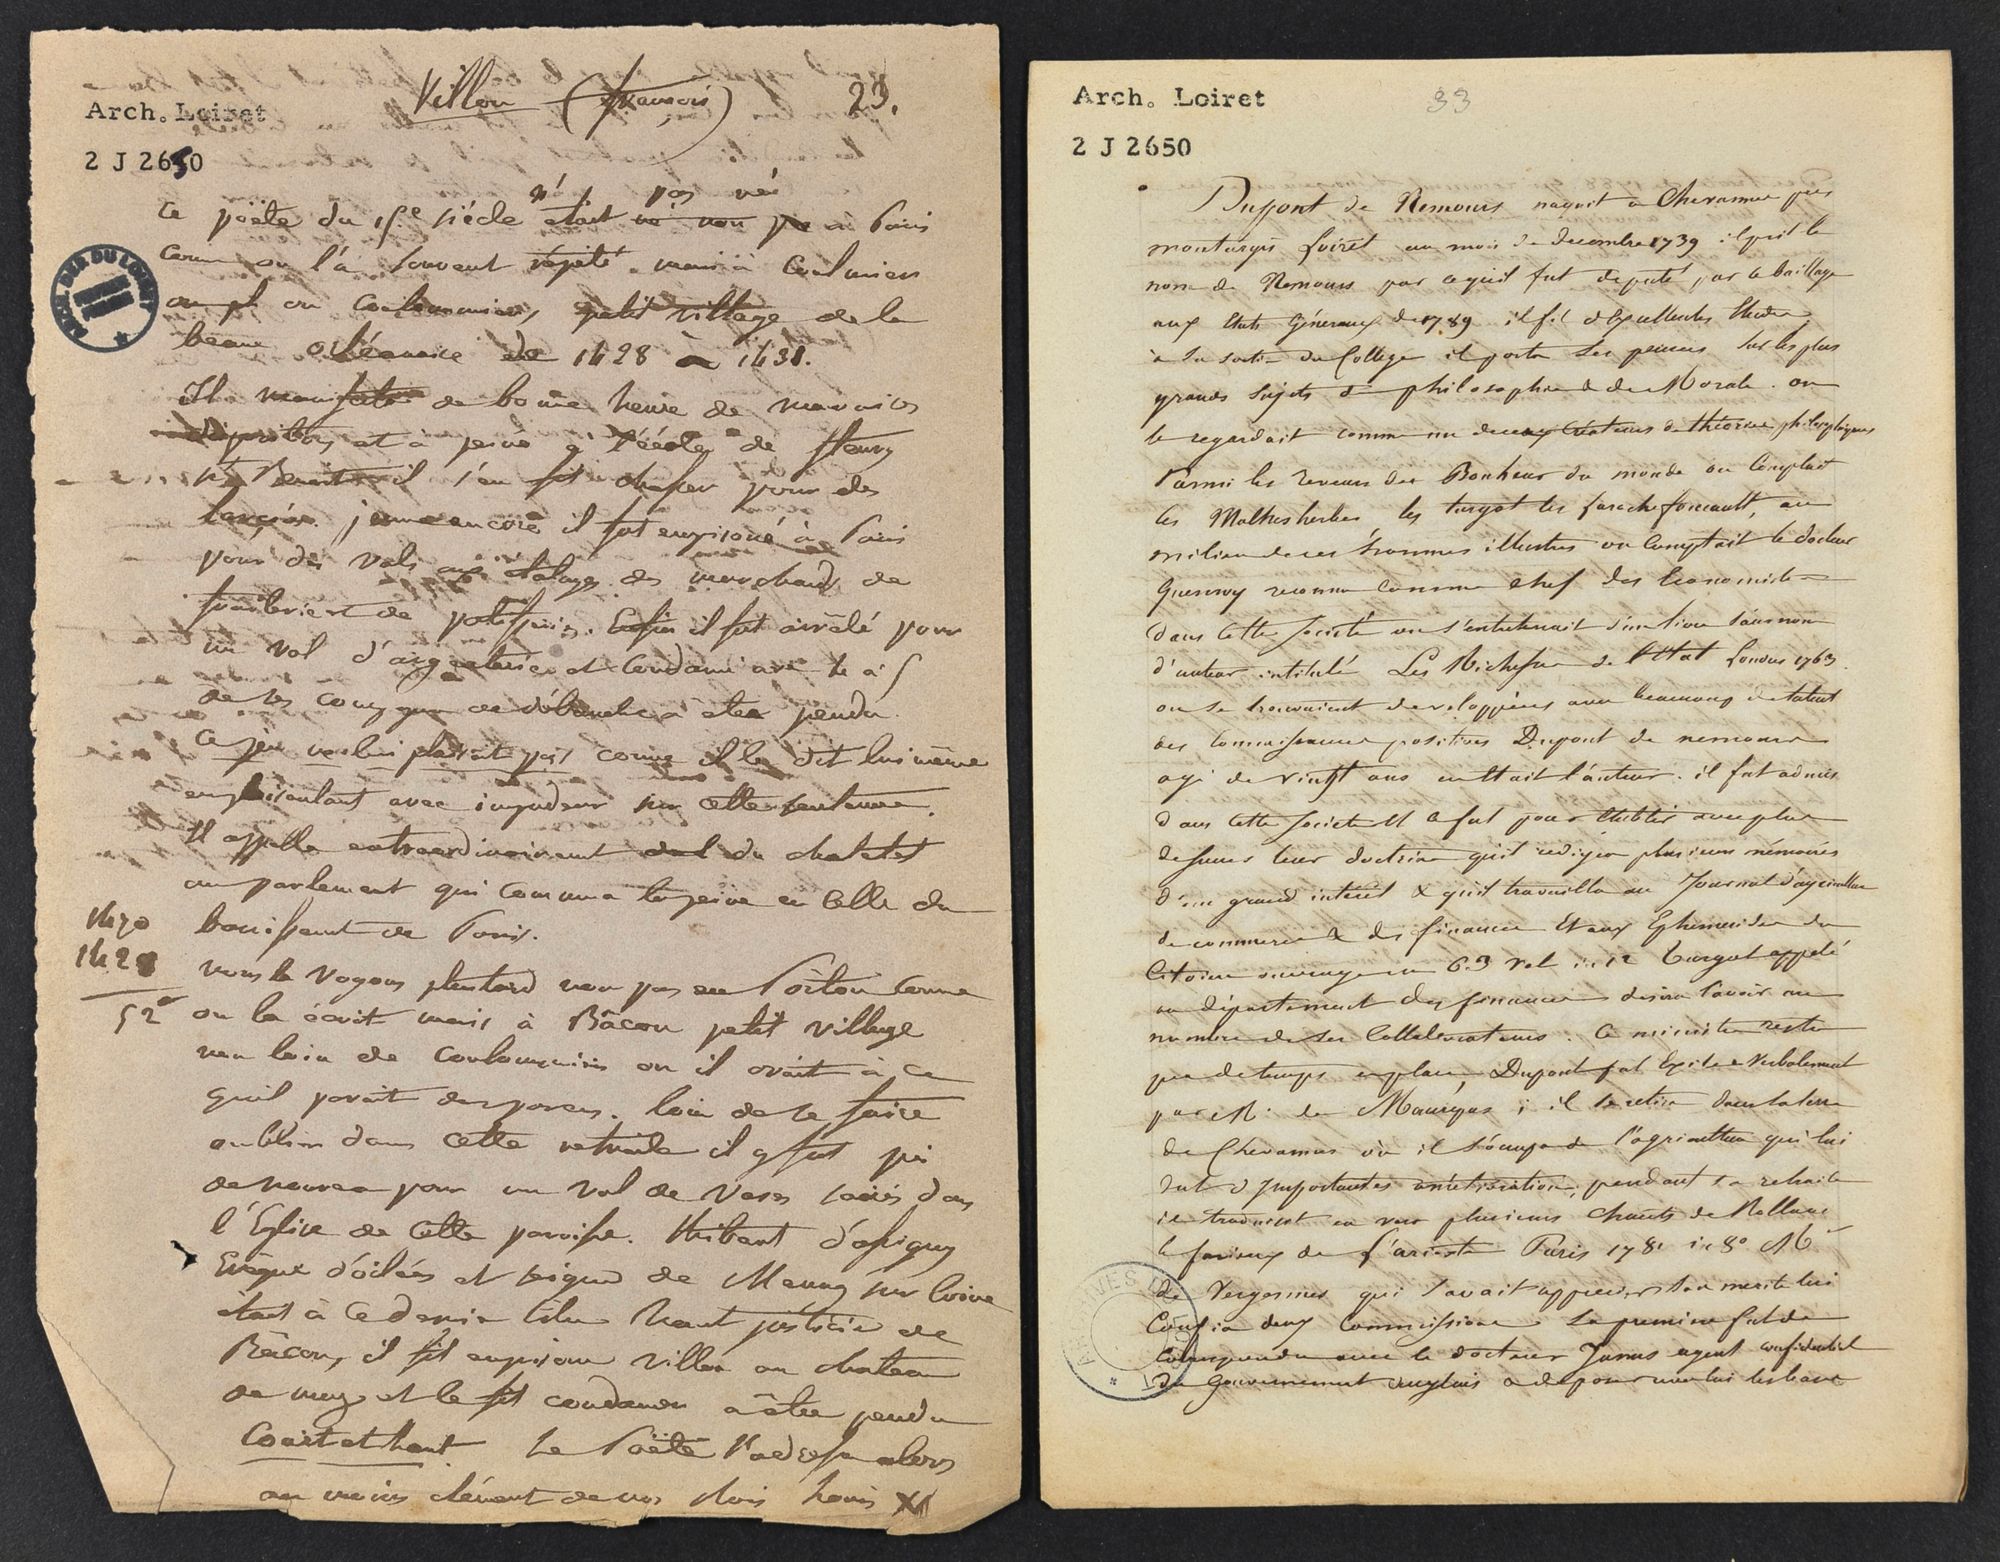 Villon (françois) 23.
Arch. Loiret
2 J 2650
ARCH. DEP. DU LOIRET
ce poëte du 15.e siécle n'était pas né à Paris
comme on l'a souvent répété mais à Coulmiers
ou Coulommiers, petit village de la
beauce orléanaise de 1428 à 1431.
Il manifeste de bonne heure de mauvaises
dispositions et à peine à l'école de fleury
st Benoit il s'en fit chasser pour des
larcins. jeune encore il fut emprisoné à Paris
pour des vols aux étalages des marchands de
de patisseries. Enfin il fut arrêlé pour
un vol d'argenterie et condamné avec
de ses compagnons de débauche à être pendu.
Ce jeu ne lui plaisait pas comme il le dit lui même
en plaisantant avec impudeur sur cette sentence.
Il appelle extraordinairement du chatelet
au parlement qui commua la peine en celle du
banissement de Paris.
1470
1428
52
nous le voyons plustard non pas en Poitou comme
on la écrit mais à Bâcon petit village
non loin de coulommiers où il avait à ce
quil parait des parens. loin de se faire
oublier dans cette retraite il y fut pris
de nouveau pour un vol de vases sacrés dans
l'Eglise de cette paroisse. thibaut d'assigny
Evêque d'oiléans et seigneur de Meung sur loire
était à ce dernier titre haut justicier de
Bâcon, il fit emprisoner villon au chateau
de mung et le fit condamner à être pendu
Court et haut. Le Poëte s'adresse alors
au moins clément de nos rois louis XI
Arch. Loiret 33
2 J 2650
Dupont de Nemours naquit a Chevannes près
montargis Loiret au mois de decembre 1739 il prit le
nom de Nemours par ce quil fut deputé par le baillage
aux Etats Généraux de 1789 il fit d'Excellentes Etudes,
à sa sortie du College il porta ses pensées sur les plus
grands sujets de philosophie & de Morale. on
le regardait comme un des créateurs de théories philosophiques
Parmi les reveurs du Bonheur du monde on Comptait
les Malhesherbes, les turgot les Larochefoucault, au
milieu de ces hommes illustres on Comptait le docteur
Quesnoy reconnu comme chef des Economistes
dans Cette Société on s'entretenait d'un livre sans nom
d'auteur intitulé Les Richesses de l'Etat Londres 1763.
ou se trouvaient developpées avec beaucoup de talent
des Connaissances positives Dupont de nemours
agé de vingt ans en était l'auteur. il fut admis
dans Cette Societé Et ce fut pour Etablir avec plus
de leur doctrine qu'il redigea plusieurs mémoires
d'un grand intérêt & quil travailla au Journal d'agriculture
de commerce & des finances Et aux Ephemerides du
Citoien ouvrage en 63 vol in 12 Turgot appelé
au département des finances desira l'avoir au
nombre de ses Collaborateurs. Ce ministre resta
peu de temps en place, Dupont fut Exilé Verbalement
par Mr de Maurepas ; il se retira dans sa terre
de Chevannes où il s'occupa de l'agriculture qui lui
dut d'Importantes améliorations, pendant sa retraite
il traduisit en vers plusieurs chants de Rolland
le furieux de L'arioste Paris 1781 in 8º Mr
de Vergennes qui savait apprecier son merite lui
Confia deux Commissions La premiere fut de
Correspondre avec le docteur agent confidentiel
du Gouvernement anglais & de poser avec lui les bases
ARCHIVES DU LOIRET